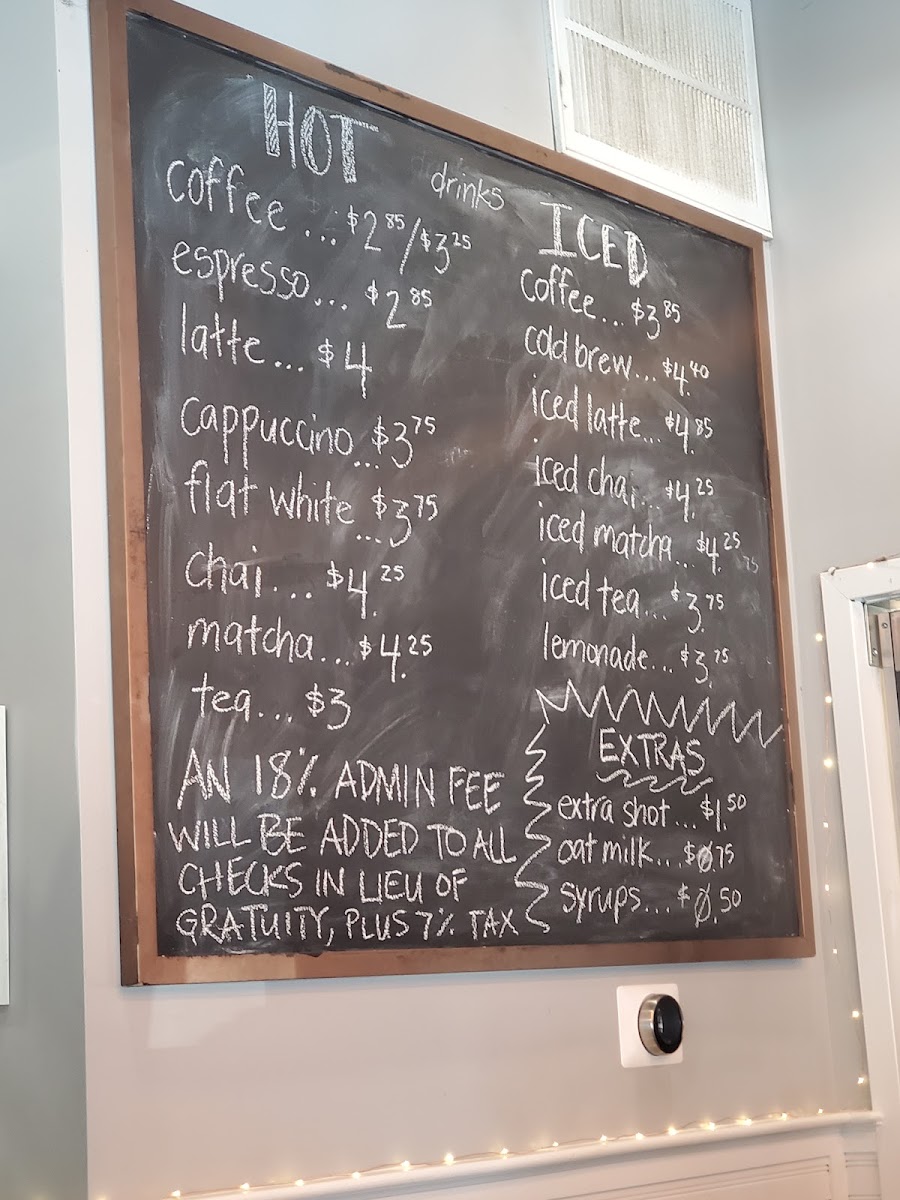 HOT
drinks
coffee ... $2.85/$3.25
espresso... $2.85
latte... $4
cappuccino ... $3.75
flat white ... $3.75
chai... $4.25
matcha... $4.25
tea... $3
AN 18% ADMIN FEE
WILL BE ADDED TO ALL
CHECKS IN LIEU OF
GRATUITY, PLUS 7% TAX
ICED
coffee... $3.85
cold brew... $4.40
iced latte... $4.85
iced chai... $4.25
iced matcha... $4.25
iced tea... $3.75
lemonade... $3.75
EXTRAS
extra shot... $1.50
oat milk... $0.75
syrups... $0.50